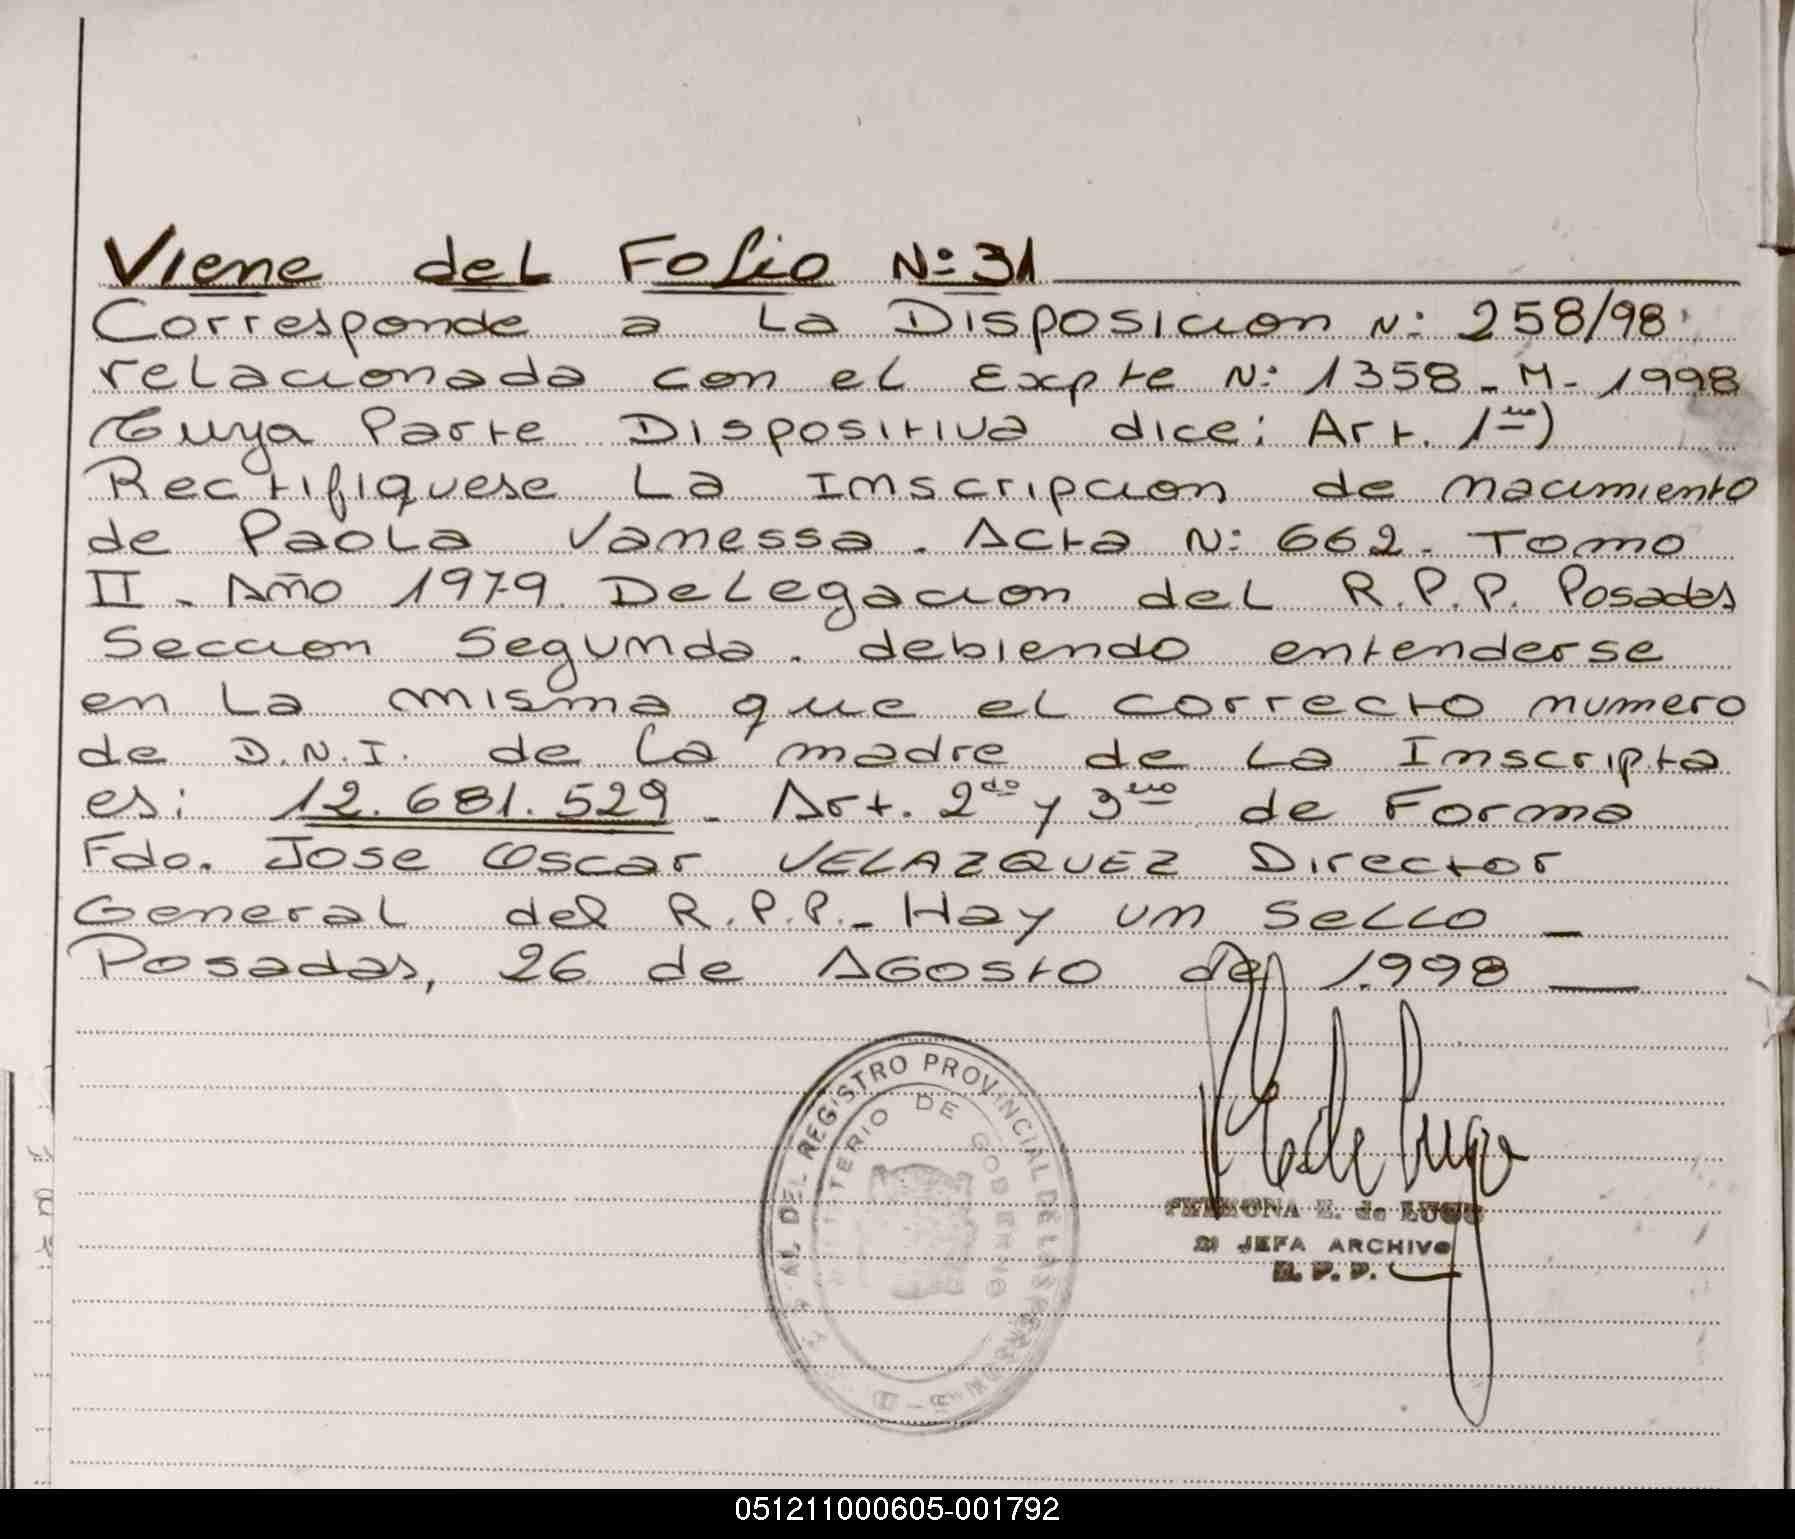 Viene del Folio Nº 31
Corresponde a La Disposicion Nº 258/98
relacionada con el Expte Nº 1358-M-1998
Cuya Parte Dispositiva dice: Art. 1ero)
Rectifiquese La Inscripcion de nacimiento
de Paola Vanessa. Acta Nº 662. Tomo
II - Año 1979. Delegacion del R.P.P. Posadas
Seccion Segunda. debiendo entenderse
en La misma que el correcto numero
de D.N.I. de La madre de La Inscripta
es: 12.681.529 - Art. 2do y 3ero de Forma
Fdo. Jose Oscar VELAZQUEZ Director
General del R.P.P. - Hay un sello
Posadas, 26 de Agosto de 1.998
AL DEL REGISTRO PROVINCIAL DE LAS PERSONAS
TERIO DE GOBIERNO
E. de LUGO
JEFA ARCHIVO
R. P. P.
051211000605-001792